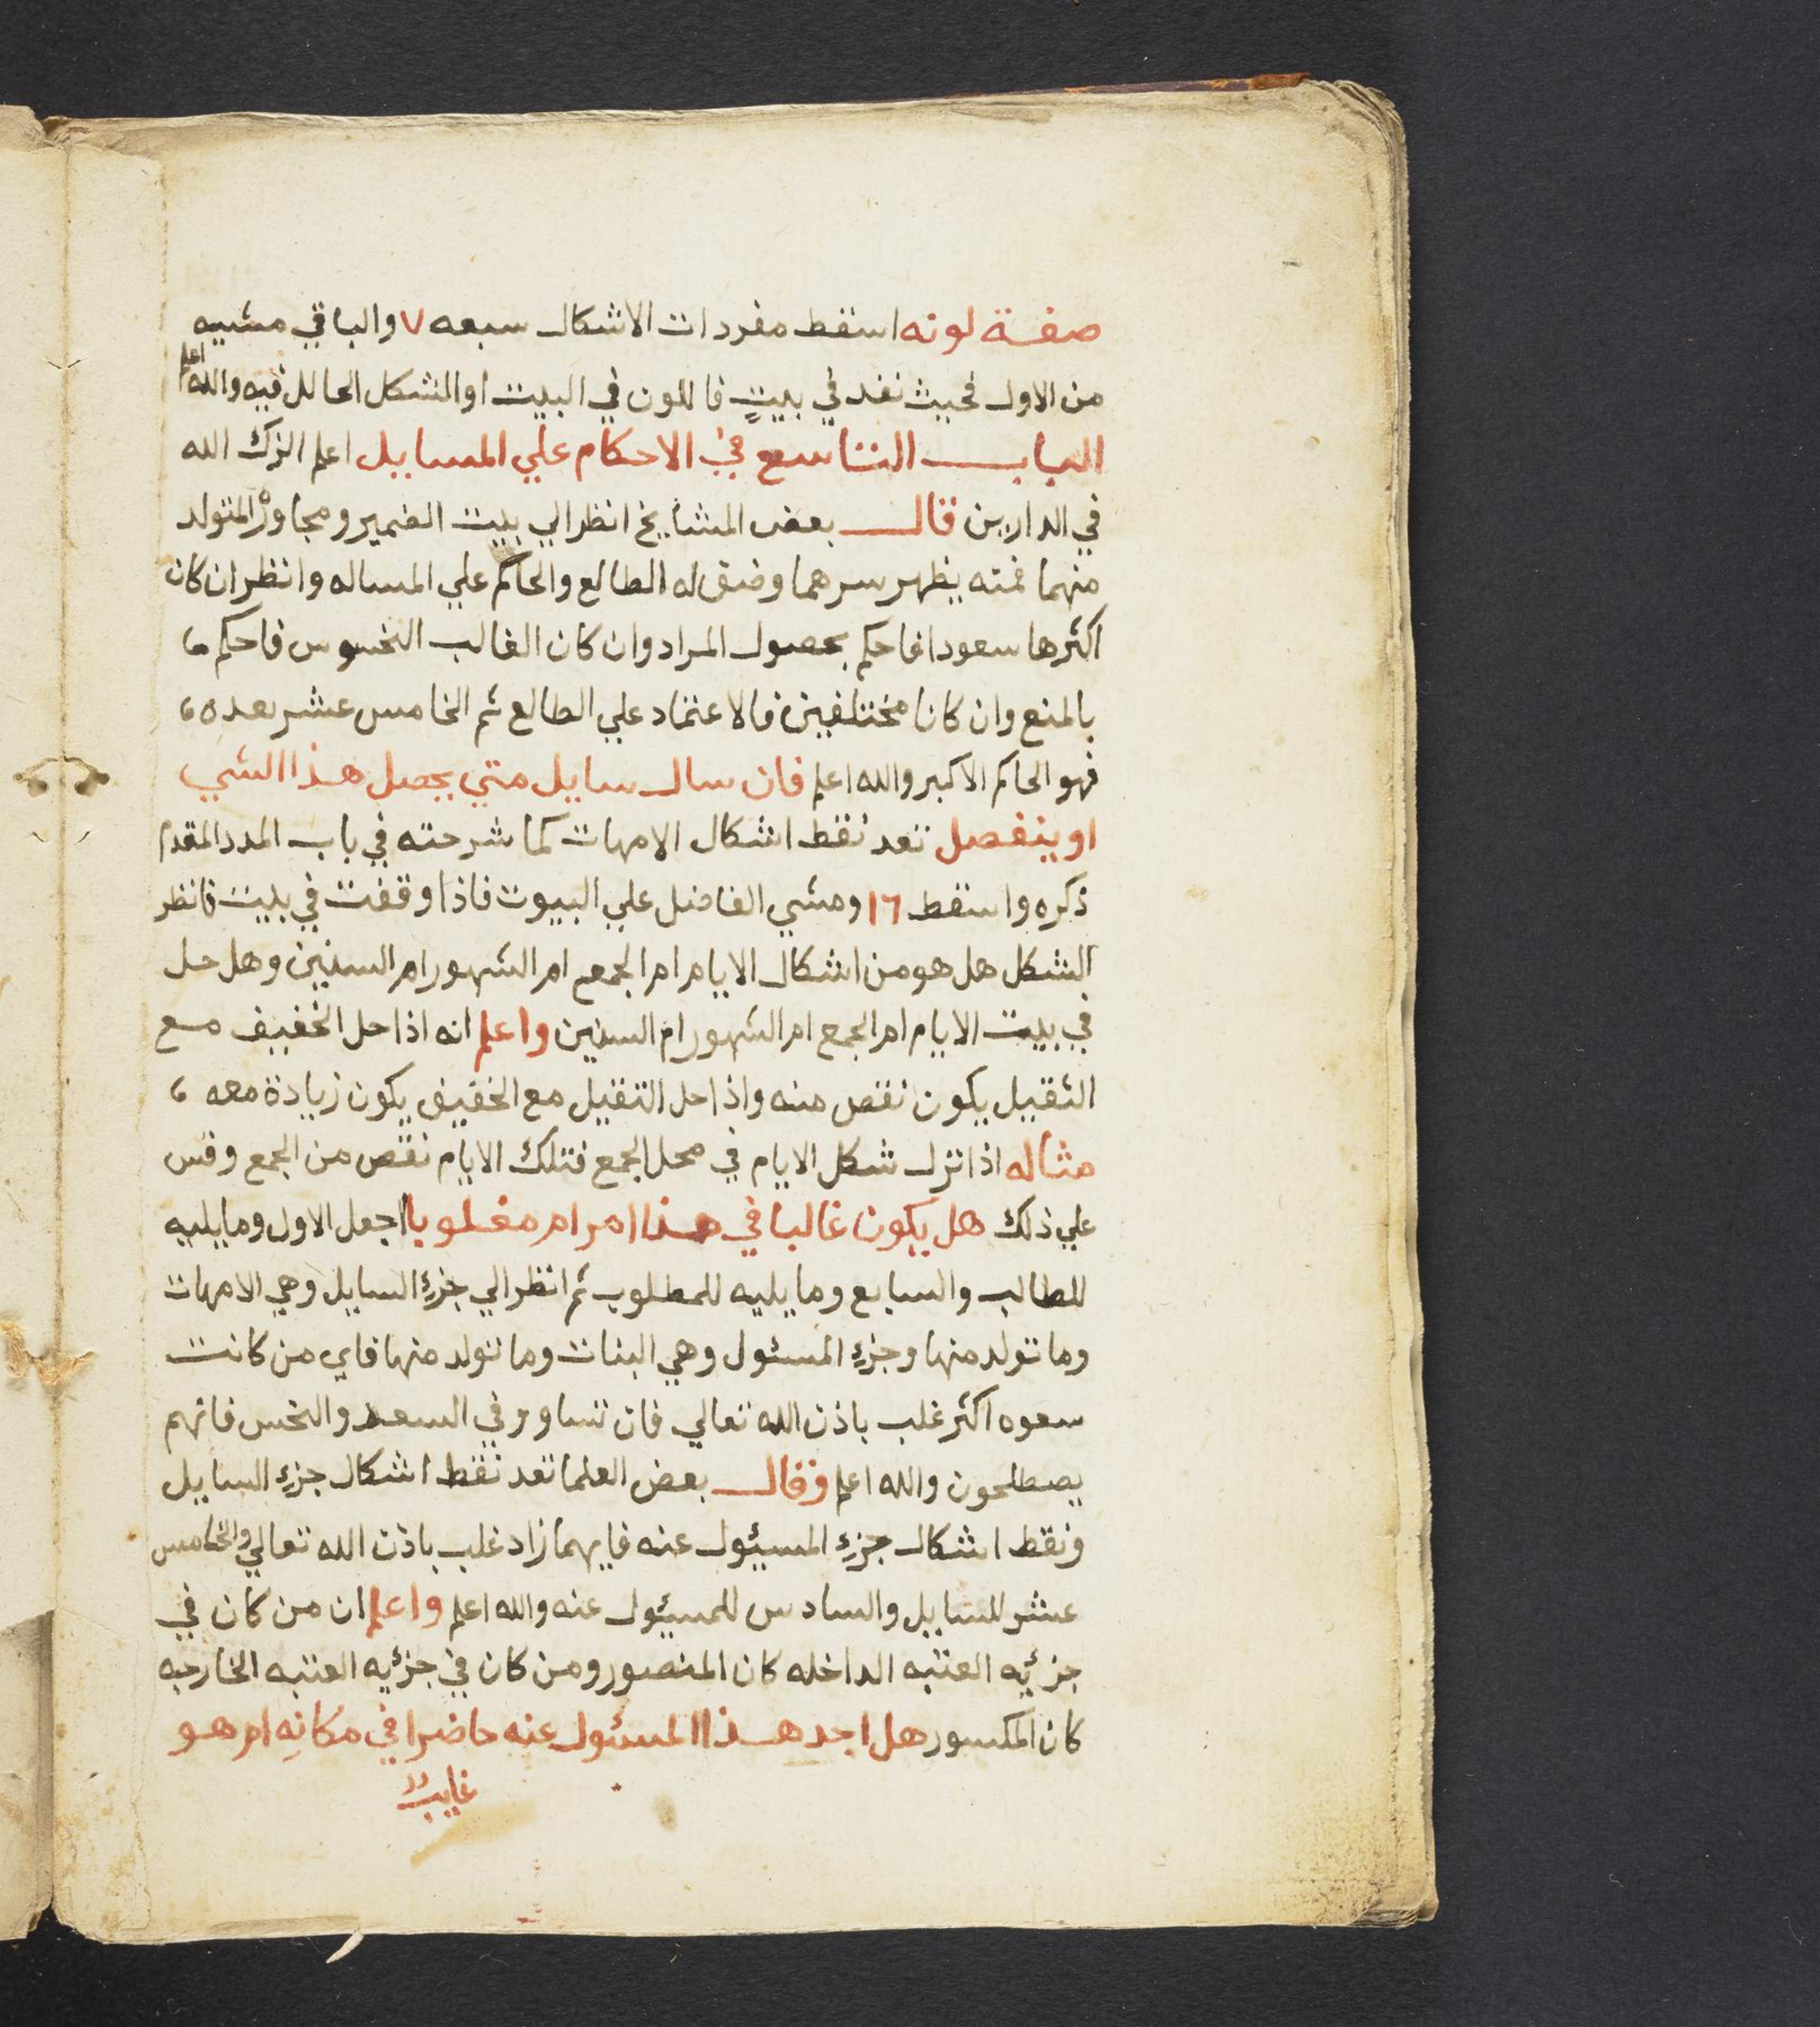 صفة لونه اسقط مفردات الاشكال سبعه ٧ والباقي مشيه
من الاول فحيث نفد في بيتٍ فاللون في البيت او الشكل الحالل فيه والله اعلم
الباب التاسع في الاحكام علي المسايل اعلم الزك الله
في الدارين قال بعض المشايخ انظر الي بيت الضمير ومجاوره المتولد
منهما فمته يظهر سرهما وضيق له الطالع والحاكم علي المساله وانظر ان كان
اكثرها سعودا فاحكم بحصول المراد وان كان الغالب النحوس فاحكم
بالمنع وان كانا مختلفين فالاعتماد علي الطالع ثم الخامس عشر بعده
فهو الحاكم الاكبر والله اعلم فان سال سايل متي يحصل هذا الشي
او ينفصل تعد نقط اشكال الامهات كما شرحته في باب المدد المقدم
ذكره واسقط ١٦ ومشي الفاضل علي البيوت فاذا وقفت في بيت فانظر
الشكل هل هو من اشكال الايام ام الجمع ام الشهور ام السنين وهل حل
في بيت الايام ام الجمع ام الشهور ام السنين واعلم انه اذا حل الخفيف مع
الثقيل يكون نقص منه واذا حل الثقيل مع الخفيف يكون زيادة معه
مثاله اذا نزل شكل الايام في محل الجمع فتلك الايام نقص من الجمع وقس
علي ذلك هل يكون غالبا في هذا امر ام مغلوبا اجعل الاول وما يليه
للطالب والسابع وما يليه للمطلوب ثم انظر الي جزءِ السايل وهي الامهات
وما تولد منها وجزءِ المسئول وهي البنات وما تولد منها فاي من كانت
سعوه اكثر غلب باذن الله تعالي فان تساوو في السعد والنحس فانهم
يصطلحون والله اعلم وقال بعض العلما تعد نقط اشكال جزءِ السايل
ونقط اشكال جزءِ المسيئول عنه فايهما زاد غلب باذن الله تعالي والخامس
عشر للسايل والسادس للمسيئول عنه والله اعلم واعلم ان من كان في
جزئيه العتبه الداخله كان المنصور ومن كان في جزئيه العتبه الخارجه
كان المكسور هل اجد هذا المسئول عنه حاضرا في مكانِه ام هو
غايب